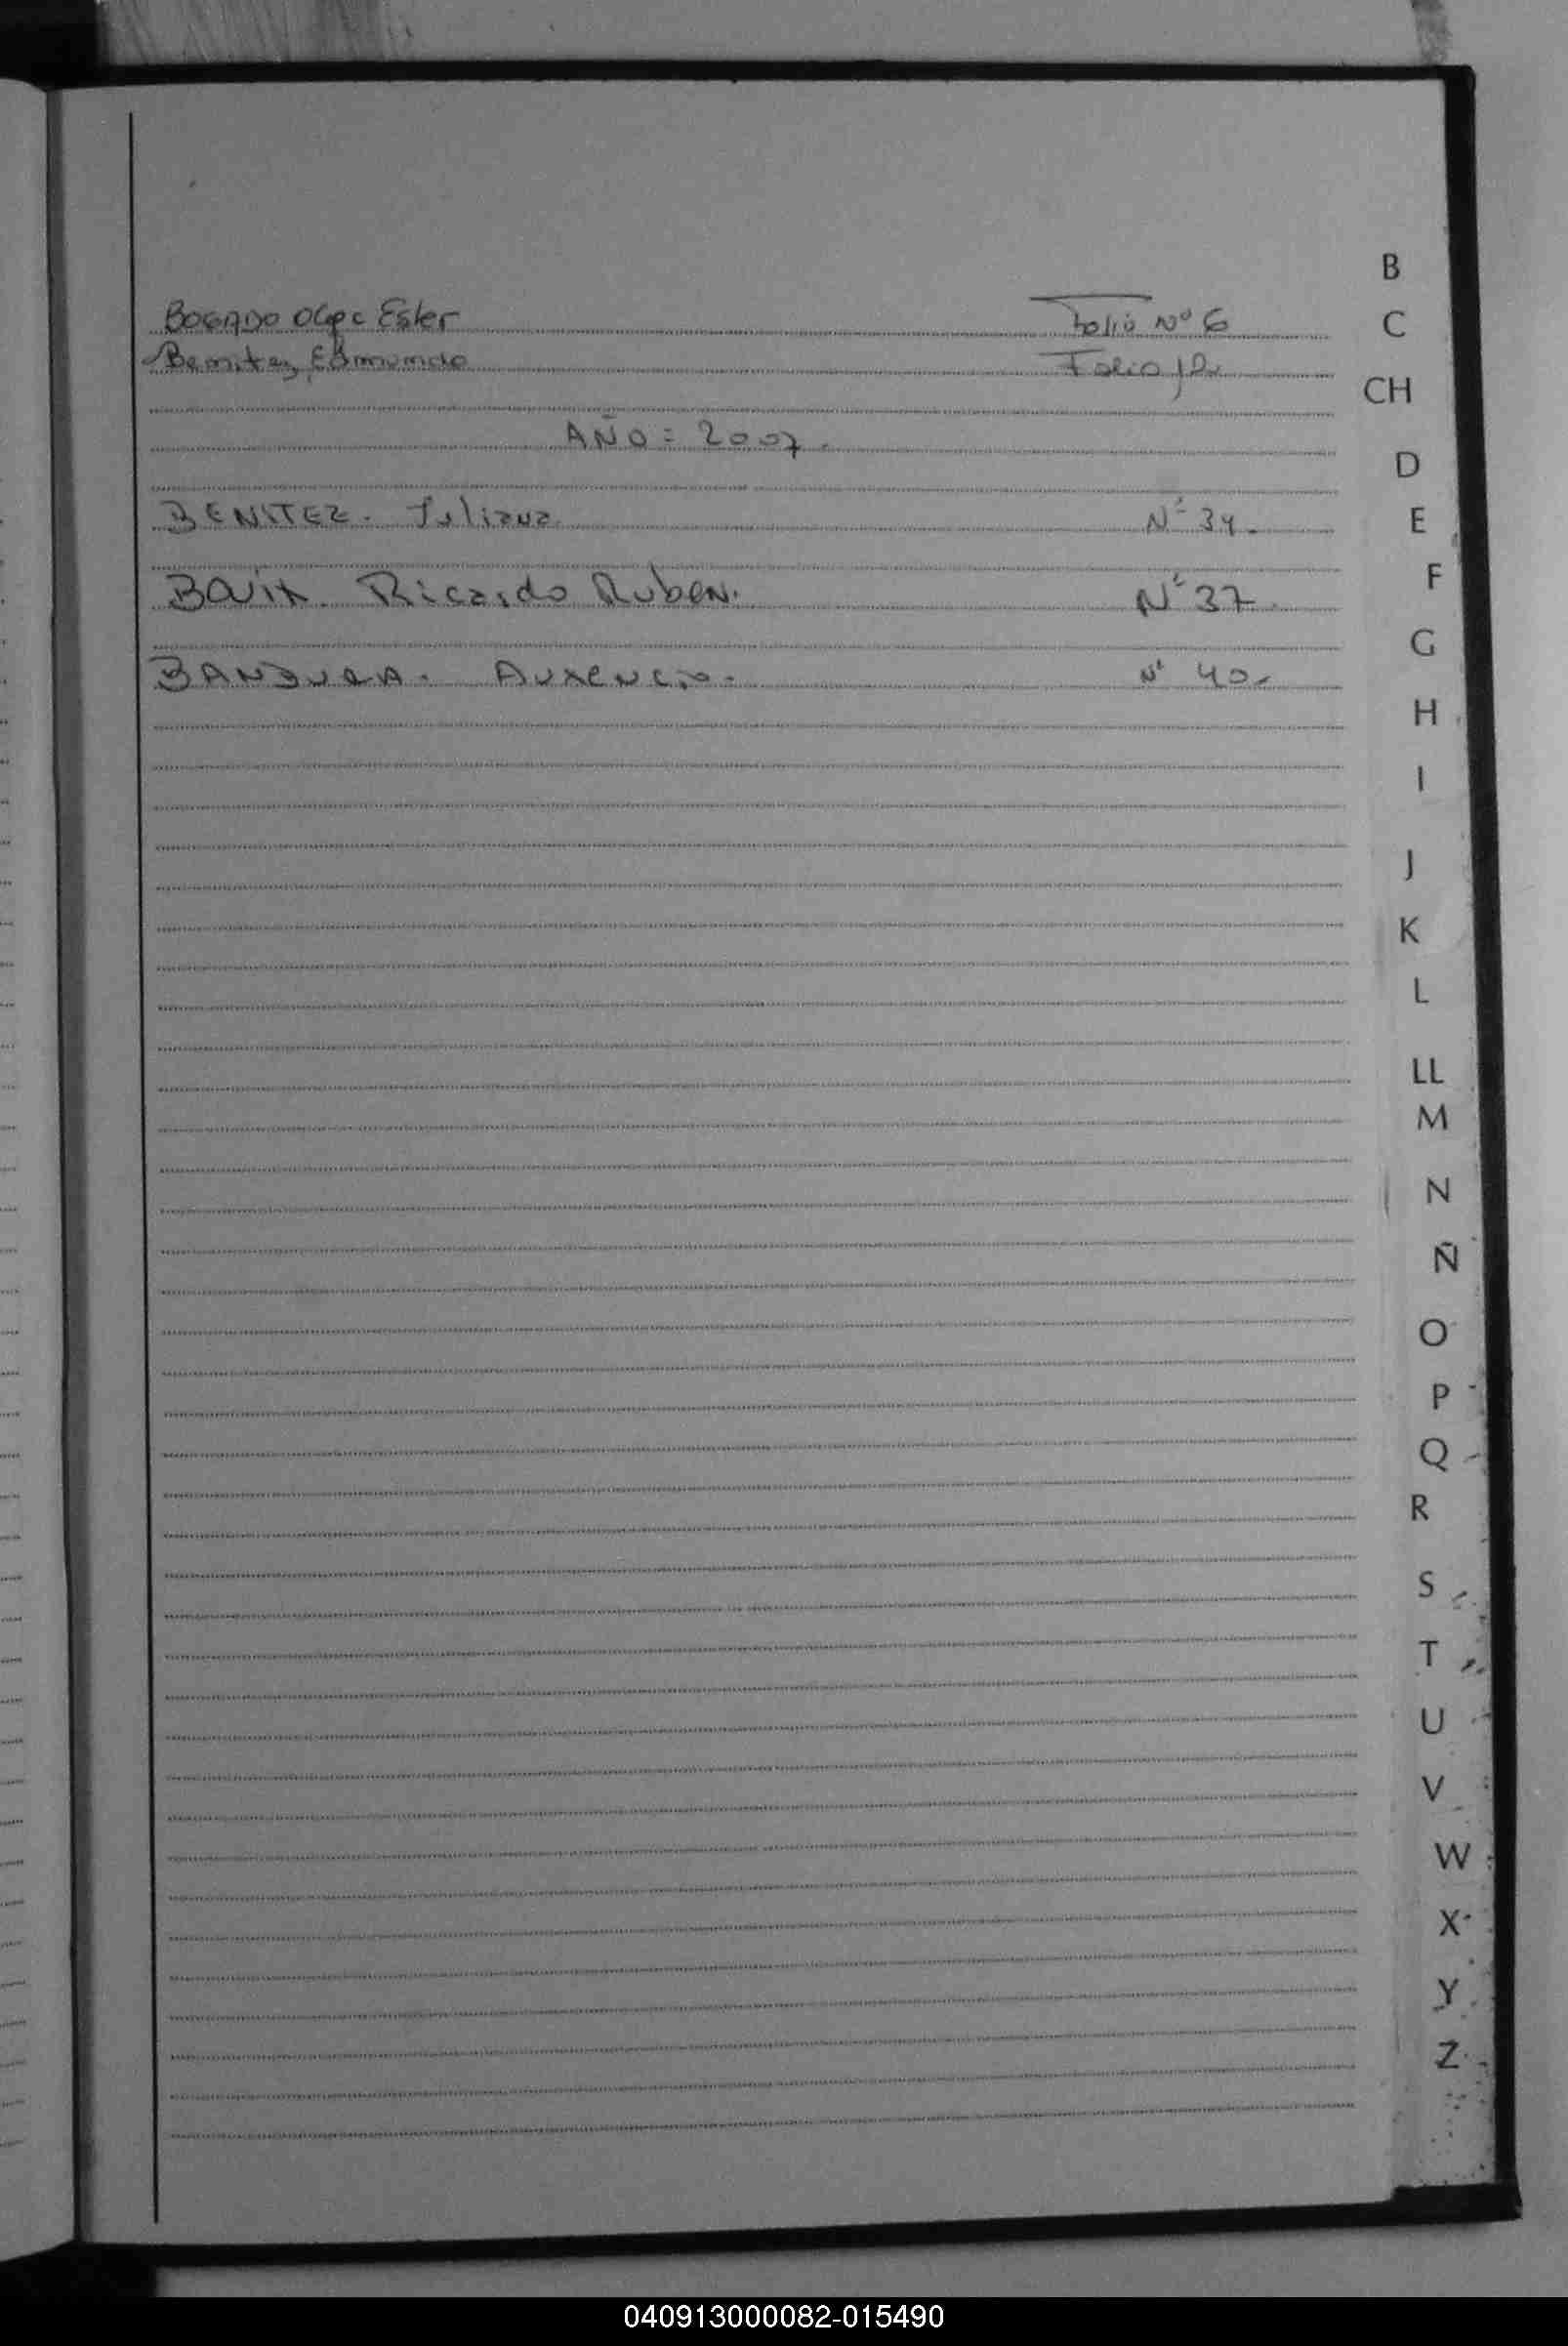 BOGADO Olga Ester Folio Nº 6
Benitez, Edmundo Folio 12
AÑO = 2007.
BENITEZ. Juliana. Nº 34.
Ricardo Ruben. Nº 37.
BANDURA. AUXENCIO. Nº 40.
B
C
CH
D
E
F
G
H
I
J
K
L
LL
M
N
Ñ
O
P
Q
R
S
T
U
V
W
X
Y
Z
040913000082-015490